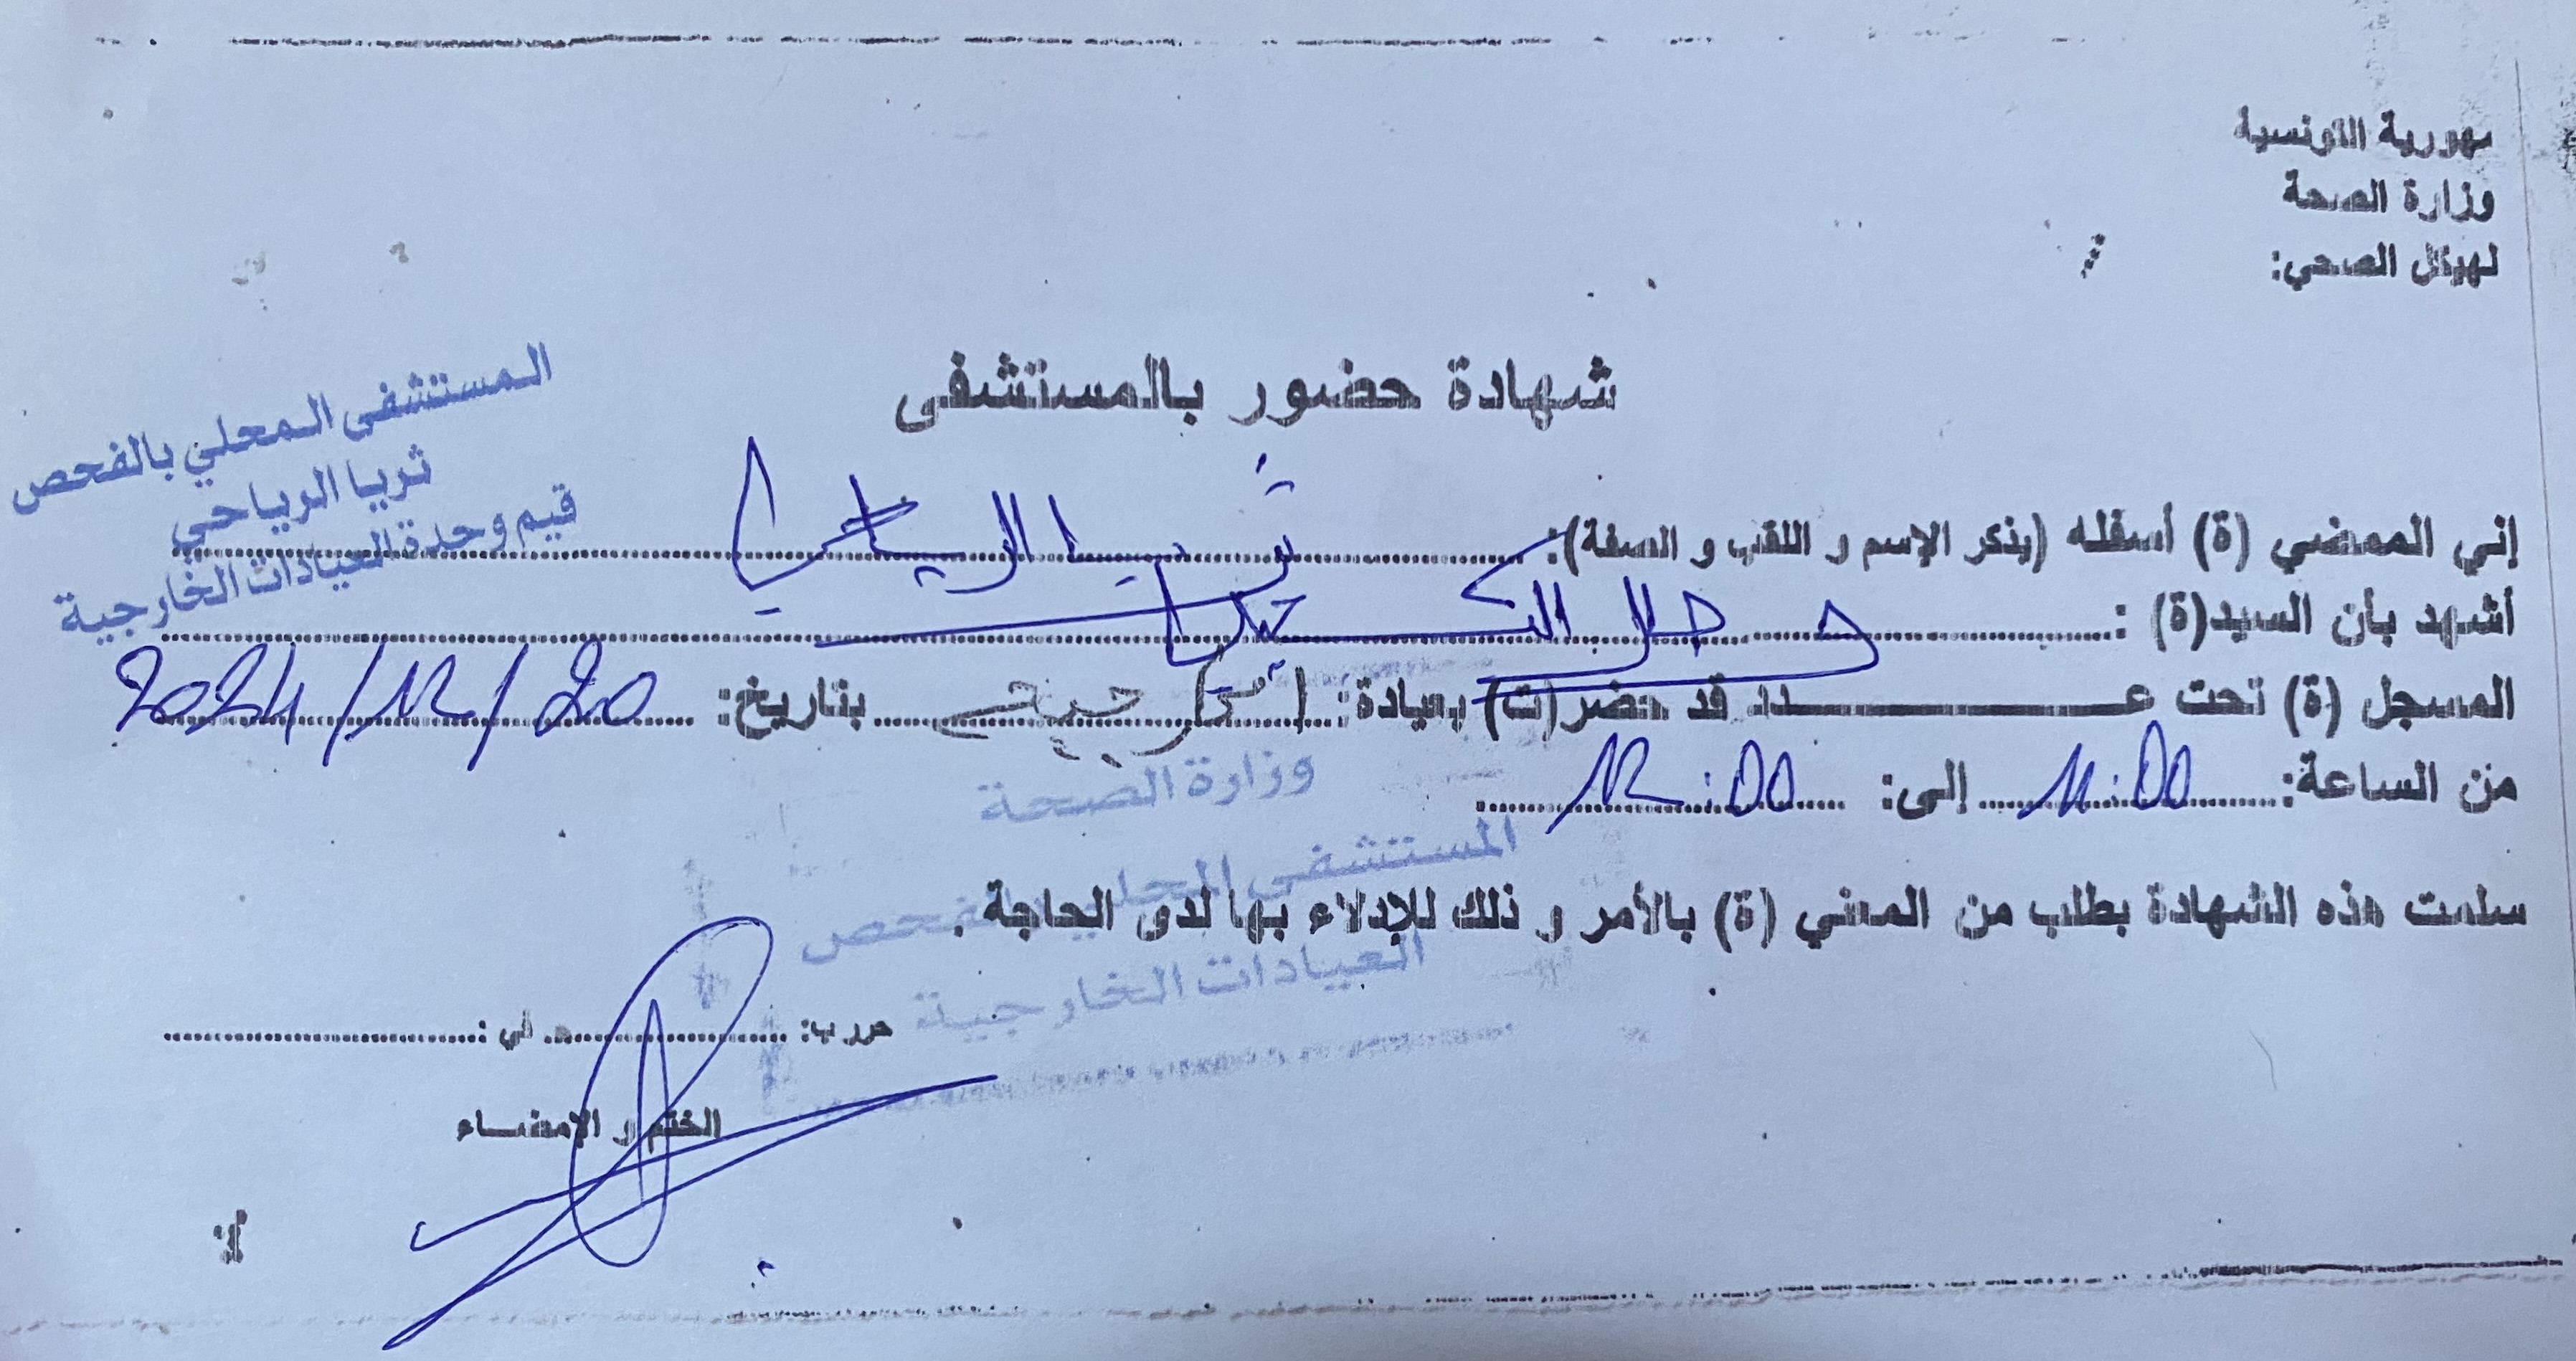 جمهورية التونسية
وزارة الصحة
لهيكل الصحي:
شهادة حضور بالمستشفى
المستشفى المحلي بالفحص
ثريا الرياحي
قيم وحدة العيادات الخارجية
إني الممضي (ة) أسفله (يذكر الإسم و اللقب و الصفة): ثريا الرياحي
أشهد بأن السيد(ة) :
المسجل (ة) تحت عدد قد حضر(ت) بعيادة: بتاريخ: 2024/12/20
من الساعة: 11:00 إلى: 12:00
وزارة الصحة
المستشفى المحلي بالفحص
العيادات الخارجية
سلمت هذه الشهادة بطلب من المعني (ة) بالأمر و ذلك للإدلاء بها لدى الحاجة .
حرر ب: في :
الختم و الإمضاء